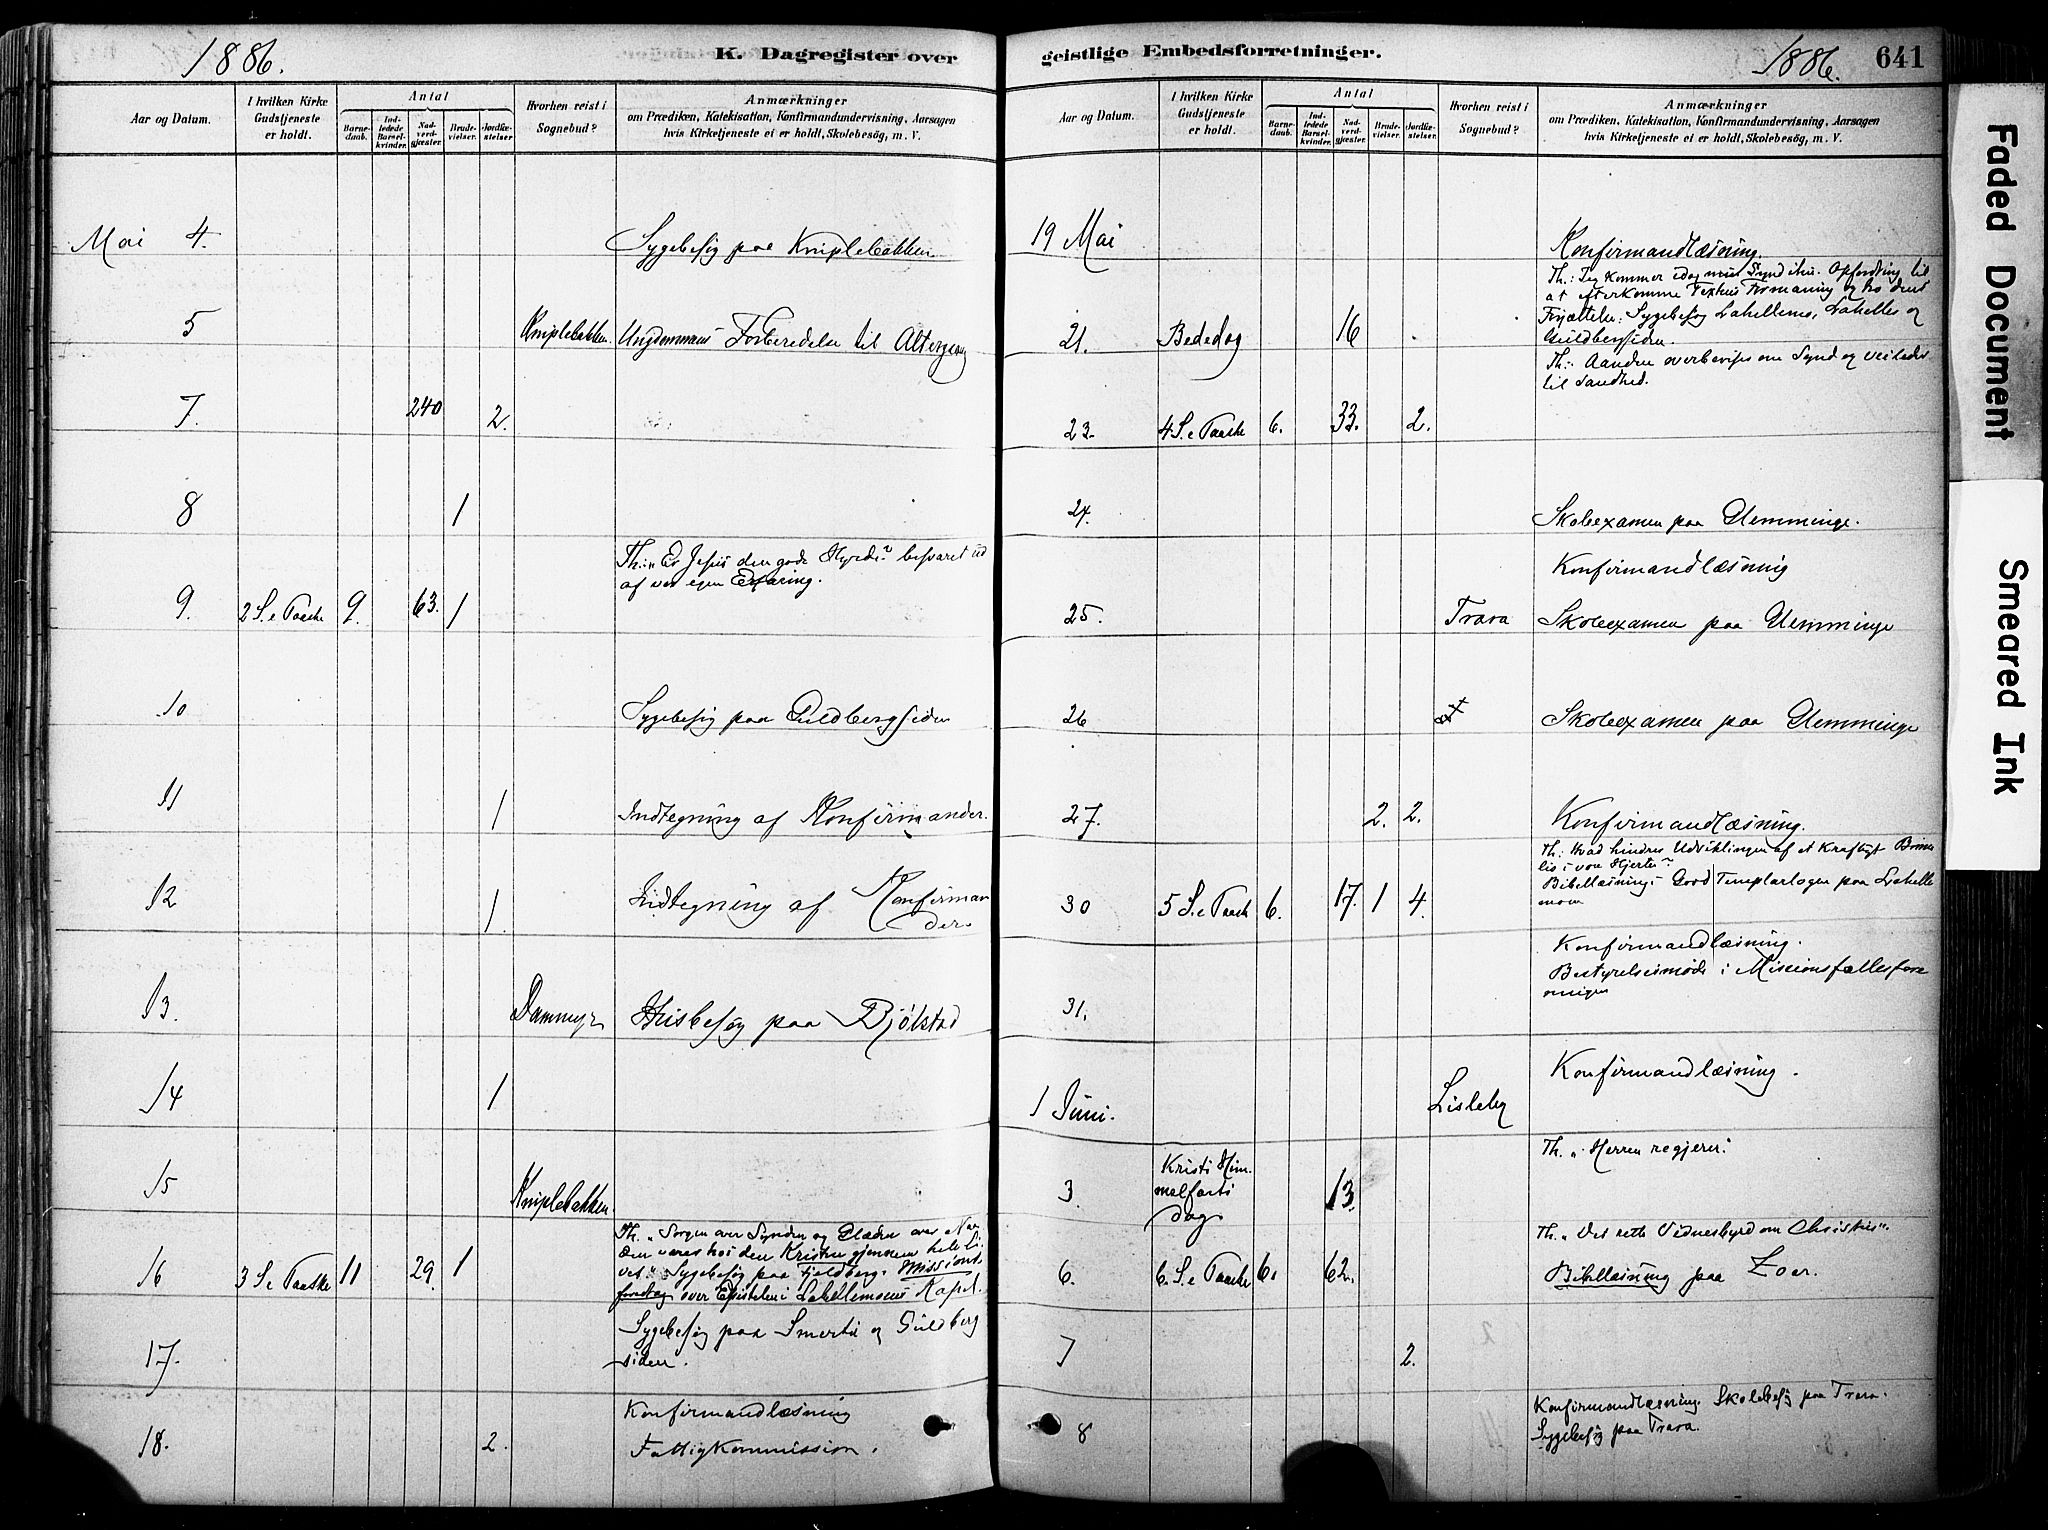 1886.
K. Dagregister over
Aar og Datum.
I hvilken Kirke Gudstjeneste er holdt.
Antal
Barne-daab.
Ind-ledede Barsel-kvinder.
Nad-verd-gjæster.
Brude-vielser.
Jordfæ-stelser.
Hvorhen reist i Sognebud?
Anmærkninger
om Prædiken, Katekisation, Konfirmandundervisning, Aarsagen
hvis Kirketjeneste ei er holdt, Skolebesög, m. V.
Mai 4. Sygebesøg paa Kniplebakken
5 Kniplebakken. Ungdommens Forberedelse til Altergang
7. 240 2.
8 1
Th: "Er Jesus den gode Hyrde?" besvaret ud
af vor egen Erfaring.
9. 2 S. e Paaske 9. 63. 1
10 Sygebesøg paa Guldbergsiden
11 1 Indtegning af Konfirmander.
12 1. Indtegning af Konfirman
der.
13. Dammyr Husbesøg paa Bjølstad
14 1
15 Kniplebakken.
Th. "Sorgen over Synden og Glæden over Naa
den være hos den Kristne gjennem hele Li
vet". Sygebesøg paa Fjeldberg. Missions
foredrag over Epistelen i Lahellemoens Kapel.
16 3 S. e Paaske 11 29. 1
Sygebesøg paa Smertu og Guldberg
siden.
17.
Konfirmandlæsning
18. 2. Fattigkommission.
geistlige Embedsforretninger.
1886.
641
Aar og Datum.
I hvilken Kirke Gudstjeneste er holdt.
Antal
Barne-daab.
Ind-ledede Barsel-kvinder.
Nad-verd-gjæster.
Brude-vielser.
Jordfæ-stelser.
Hvorhen reist i Sognebud?
Anmærkninger
om Prædiken, Katekisation, Konfirmandundervisning, Aarsagen
hvis Kirketjeneste ei er holdt, Skolebesög, m. V.
19 Mai Konfirmandlæsning.
Th.: Jeg kommer idag min Synd ihu. Opfordring til
at efterkomme Textens Formaning og ho dens
Sygebesøg Lahellemo, Lahelle og
Guldbergsiden.
21. Bededag 16
Th: Aanden overbevise om Synd og veileder
til Sandhed.
23. 4 S. e Paaske 6. 33. 2.
24. Skoleexamen paa Glemminge.
Konfirmandlæsning
25. Trara Skoleexamen paa Glemminge
26 Skoleexamen paa Glemminge
27. 2. 2. Konfirmandlæsning.
Th: Hvad hindrer Udviklingen af et kraftigt Bønne
liv i vore Hjerter?
Bibellæsning i Good Templarlogen paa Lahelle
moen
30 5 S. e Paaske 6. 17. 1 4.
Konfirmandlæsning.
Bestyrelsesmøde i Missionsfællesfore
ningen
31.
Konfirmandlæsning.
1 Juni. Lisleby
Th. "Herren regjerer".
3 Kristi Him
melfarts
dag 13.
Th. "Det rette Vidnesbyrd om Christus".
6. 6. S. e Paaske 6. 62. Bibellæsning paa Zoar.
7 2.
Konfirmandlæsning. Skolebesøg paa Trara.
8 Sygebesøg paa Trara.
Faded Document
Smeared Ink